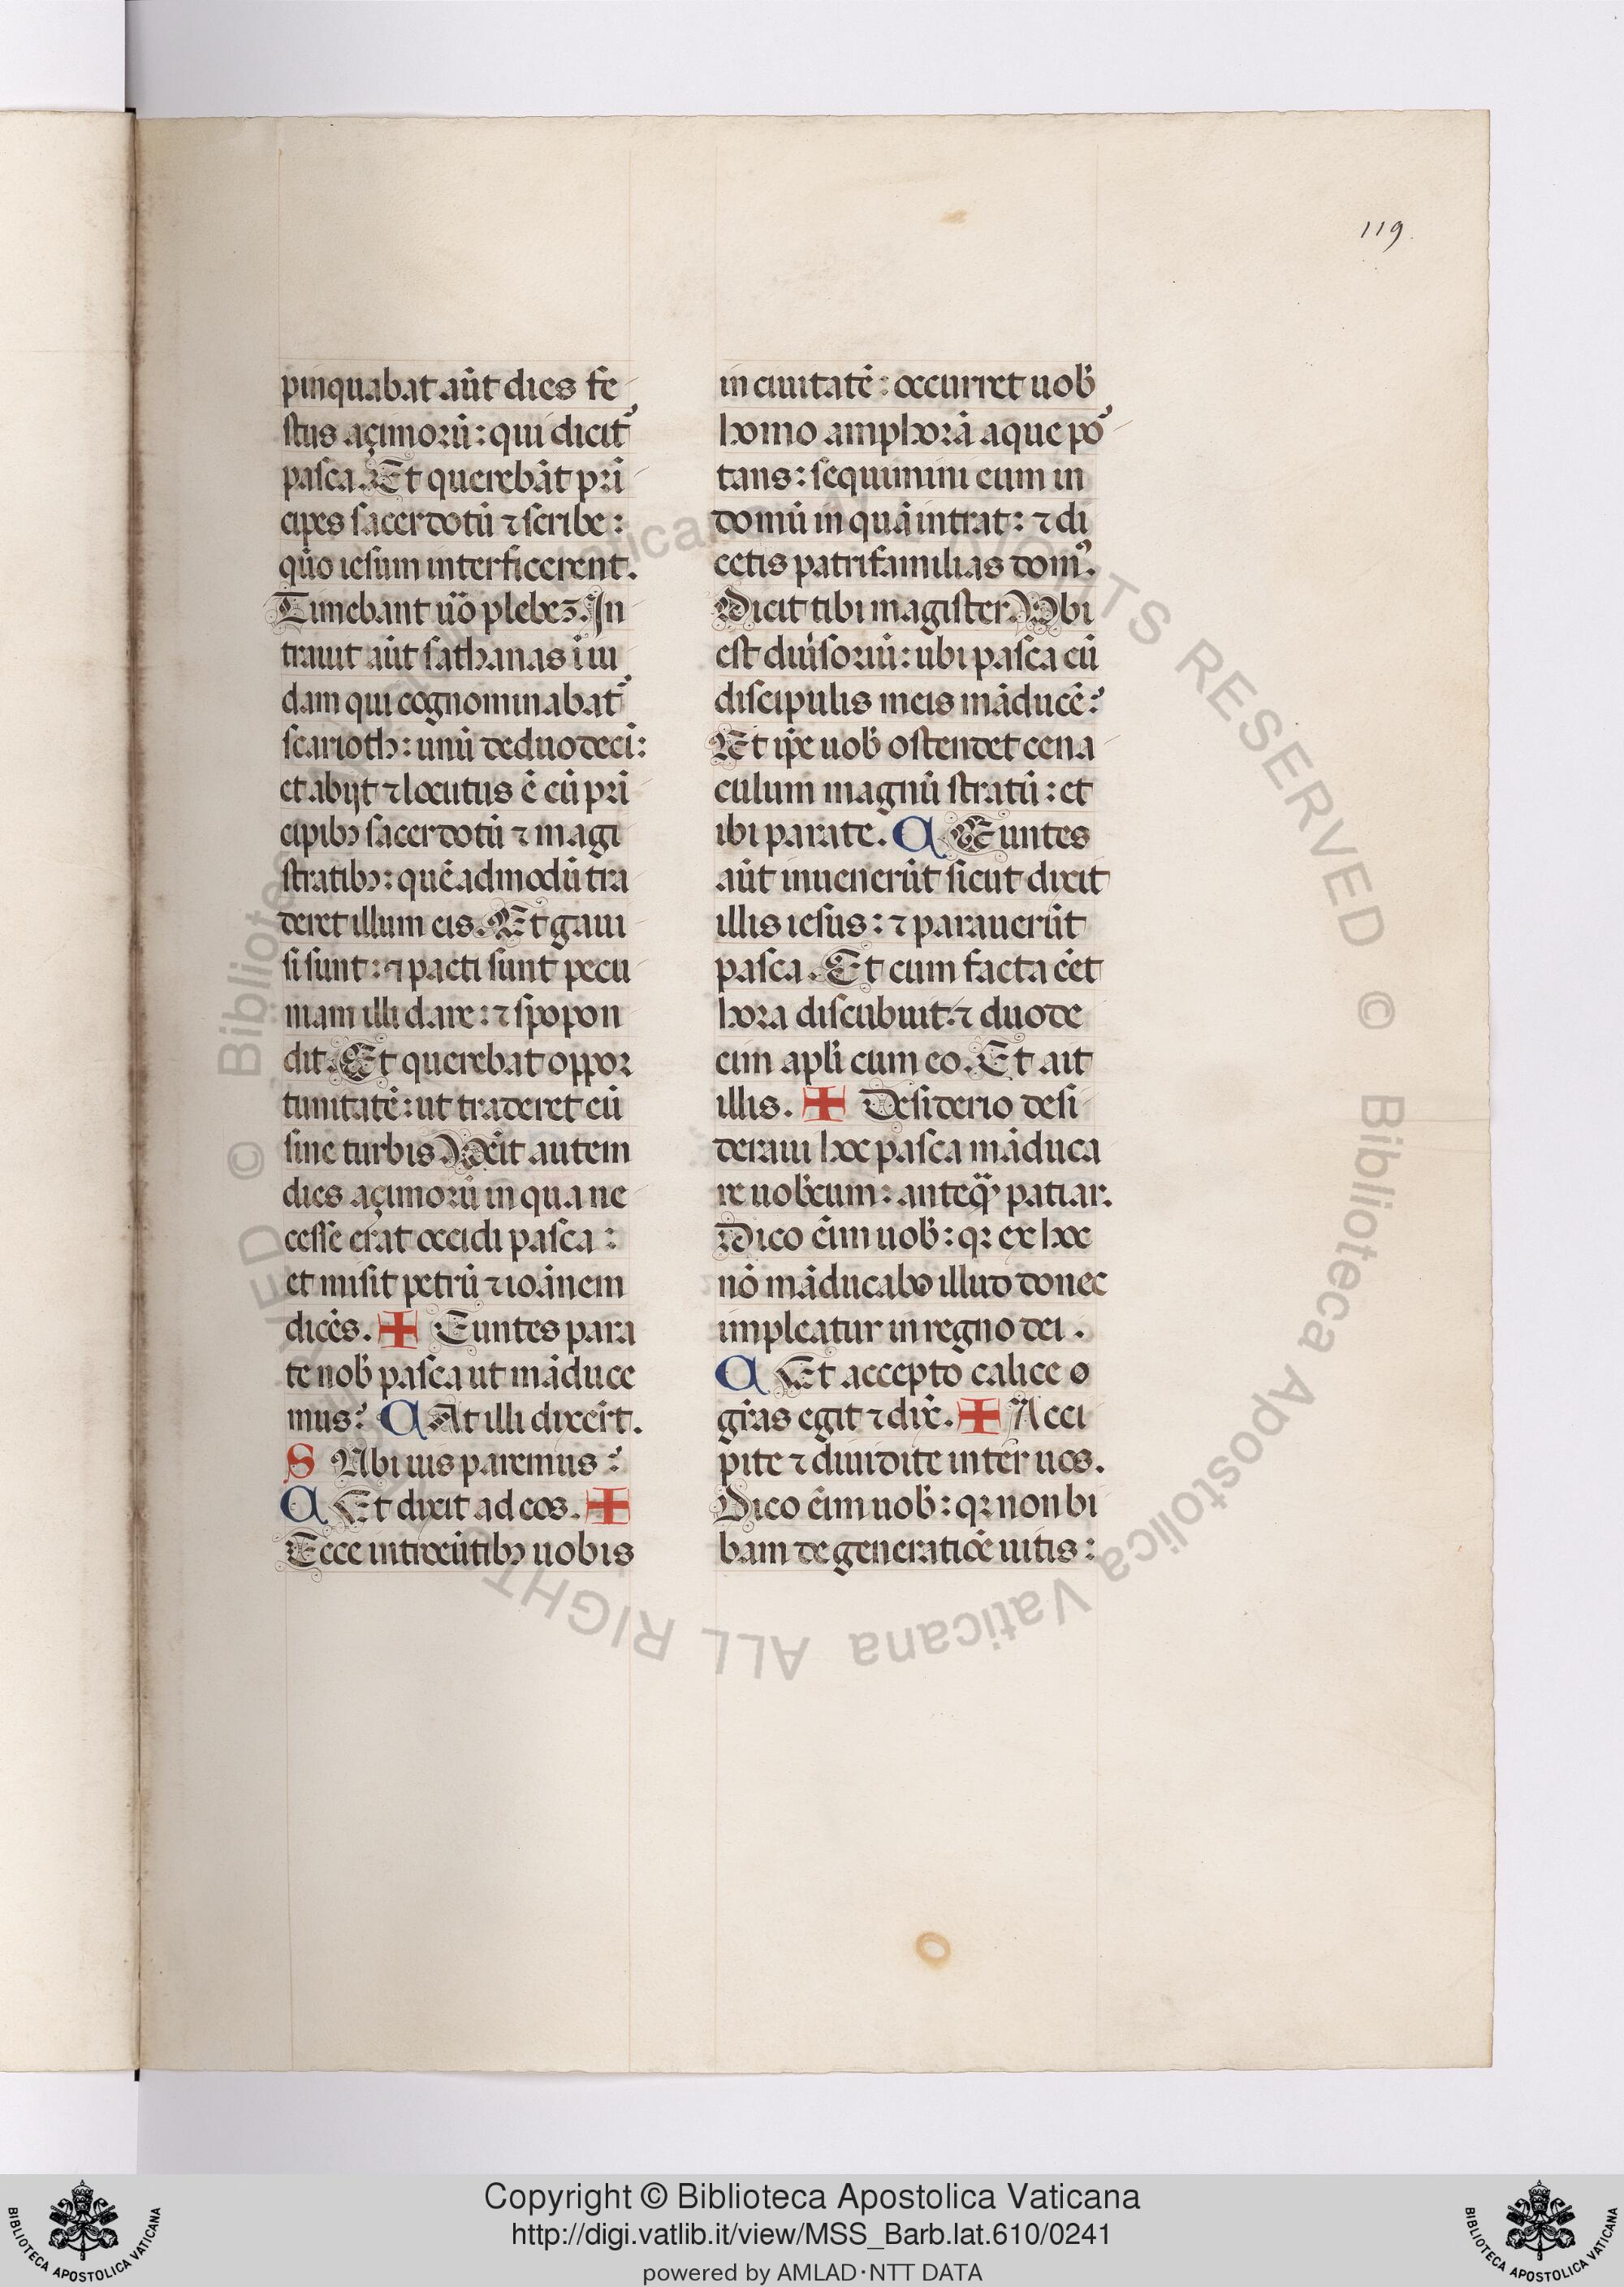 119.
pinquabat aūt dies fe
stus açimorū: qui dicit᷑
pasca. Et querebāt pri
cipes sacerdotū ⁊ scribe:
quō iesum interficerent.
Timebant uō plebeꝫ. In
trauit aūt sathanas ī iu
dam qui cognominabat᷑
scarioth: unū de duodecī:
et abijt ⁊ locutus ē cū pri
cipibꝫ sacerdotū ⁊ magi
stratibꝫ: quē admodū tra
deret illum eis. Et gaui
si sunt: ⁊ pacti sunt pecu
niam illi dare: ⁊ spopon
dit. Et querebat oppor
tunitatē: ut traderet eū
sine turbis. Uēit autem
dies açimorū in qua ne
cesse erat occidi pasca:
et misit petrū ⁊ ioānem
dicēs. ✠ Euntes para
te nob̄ pasca ut māduce
mus? C At illi dixer̄t.
S Ubi uis paremus?
C Et dixit ad eos. ✠
Ecce introeūtibꝫ uobis
in ciuitatē: occurret uob̄
homo amphorā aque po᷑
tans: sequimini eum in
domū in quā intrat: ⁊ di
cetis patrifamilias domꝰ.
Dicit tibi magister. Ubi
est diuisoriū: ubi pasca cū
discipulis meis māducē?
Et ip̄e uob̄ ostendet cena
culum magnū stratū: et
ibi parate. C Euntes
aūt inuenerūt sicut dixit
illis iesus: ⁊ parauerūt
pasca. Et cum facta eēt
hora discubuit: ⁊ duode
cim apl̄i cum eo. Et ait
illis. ✠ Desiderio desi
deraui hoc pasca māduca
re uob̄cum: anteq̄ꝫ patiar.
Dico eīm uob̄: qꝛ ex hoc
nō māducabo illud donec
impleatur in regno dei.
C Et accepto calice
gr̄as egit ⁊ dix̄. ✠ Acci
pite ⁊ diuidite inter uos.
Dico eīm uob̄: qꝛ non bi
bam de generatiōe uitis:
© Biblioteca Apostolica Vaticana ALL RIGHTS RESERVED
Copyright © Biblioteca Apostolica Vaticana
http://digi.vatlib.it/view/MSS_Barb.lat.610/0241
powered by AMLAD·NTT DATA
BIBLIOTECA APOSTOLICA VATICANA
BIBLIOTECA APOSTOLICA VATICANA